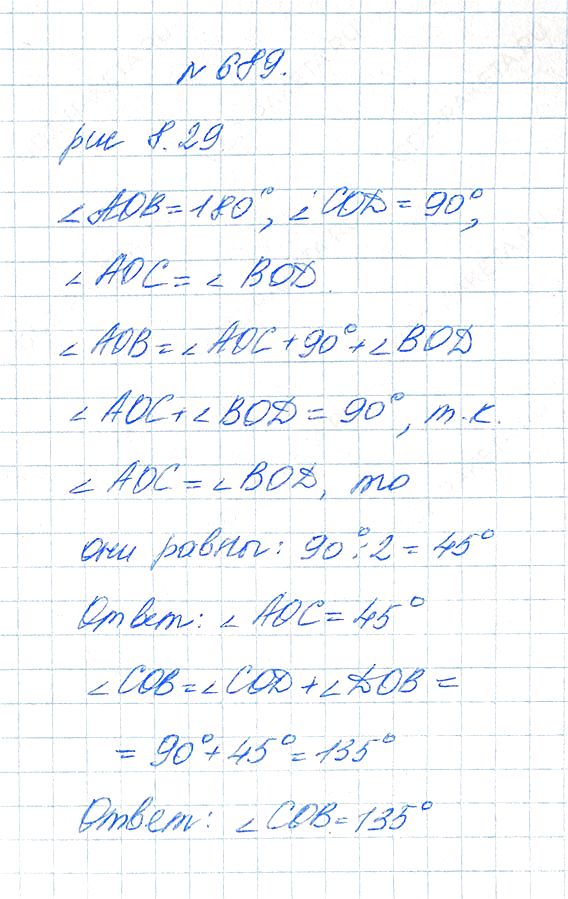 № 689.
рис 8.29
∠AOB = 180°, ∠COD = 90°,
∠AOC = ∠BOD.
∠AOB = ∠AOC + 90° + ∠BOD
∠AOC + ∠BOD = 90°, т.к.
∠AOC = ∠BOD, то
они равны: 90° : 2 = 45°
Ответ: ∠AOC = 45°
∠COB = ∠COD + ∠DOB =
= 90° + 45° = 135°
Ответ: ∠COB = 135°